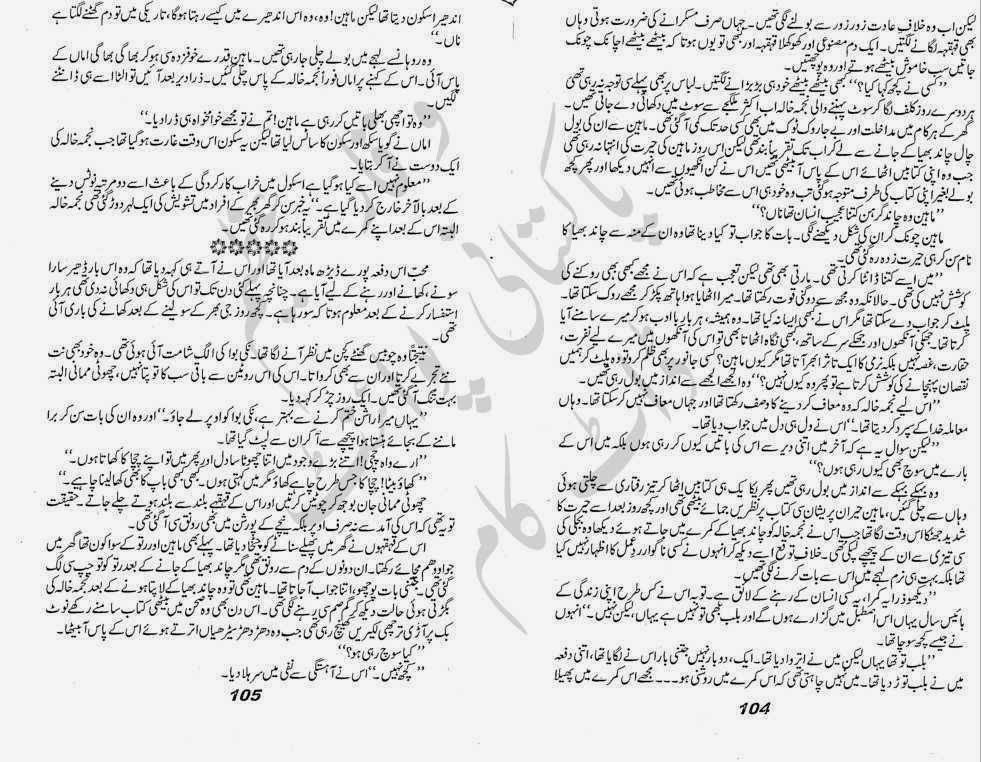 لیکن اب وہ خلاف عادت زور زور سے بولنے لگی تھیں۔ جہاں صرف مسکرانے کی ضرورت ہوتی وہاں
بھی قہقہہ لگانے لگتیں۔ ایک دم مصنوعی اور کھوکھلا قہقہہ اور بھی تو یوں ہوتا کہ بیٹھے بیٹھے اچانک چونک
جاتیں سب خاموش بیٹھے ہوتے اور وہ پوچھتیں۔
’’کسی نے کچھ کہا کیا؟‘‘ کبھی بیٹھے بیٹھے خود ہی بڑبڑانے لگتیں۔ لباس پر بھی پہلے سی توجہ نہ رہی تھی
ہر دوسرے روز کلف لگا کر سوٹ پہننے والی نجمہ خالہ اب اکثر ملگجے سے سوٹ میں دکھائی دے جاتی تھیں۔
گھر کے ہر کام میں مداخلت اور بے جا روک ٹوک میں بھی کسی حد تک کمی آ گئی تھی۔ ماہین سے ان کی بول
چال چاند بھیا کے جانے سے لے کر اب تک تقریباً بند تھی لیکن اس روز ماہین کی حیرت کی انتہا نہ رہی تھی
جب وہ اپنی کتابیں اٹھائے اس کے پاس آ بیٹھی تھیں اس نے کن انکھیوں سے انہیں دیکھا اور پھر کچھ
بولے بغیر اپنی کتاب کی طرف متوجہ ہو گئی تب وہ خود ہی اس سے مخاطب ہوئی تھیں۔
’’ماہین وہ چاند گرہن کتنا عجیب انسان تھا ناں؟‘‘
ماہین چونک کر ان کی شکل دیکھنے لگی۔ بات کا جواب تو کیا دینا تھا وہ ان کے منہ سے چاند بھیا کا
نام سن کر ہی حیرت زدہ رہ گئی تھی۔
’’میں اسے کتنا ڈانٹا کرتی تھی۔ مارتی بھی تھی لیکن تعجب ہے کہ اس نے مجھے کبھی بھی روکنے کی
کوشش نہیں کی تھی۔ حالانکہ وہ مجھ سے دوگنی قوت رکھتا تھا۔ میرا اٹھایا ہوا ہاتھ پکڑ کر مجھے روک سکتا تھا۔
پلٹ کر جواب دے سکتا تھا مگر اس نے کبھی ایسا نہ کیا تھا۔ وہ ہمیشہ، ہر بار با ادب ہو کر میرے سامنے آیا
کرتا تھا۔ جھکی آنکھوں اور جھکے سر کے ساتھ، کبھی نگاہ اٹھاتا بھی تو اس کی آنکھوں میں میرے لیے نفرت،
حقارت، غصہ نہیں بلکہ نرمی کا ایک تاثر ابھر آتا تھا مگر کیوں ماہین؟ کسی جانور پر بھی ظلم کرو تو وہ پلٹ کر ہمیں
نقصان پہنچانے کی کوشش کرتا ہے تو پھر وہ کیوں نہیں؟‘‘ وہ الجھے الجھے سے انداز میں بول رہی تھیں۔
’’اس لیے نجمہ خالہ کہ وہ معاف کر دینے کا وصف رکھتا تھا اور جہاں معاف نہیں کر سکتا تھا۔ وہاں
معاملہ خدا کے سپرد کر دیتا تھا۔‘‘ اس نے دل ہی دل میں جواب دیا تھا۔
’’لیکن سوال یہ ہے کہ آخر میں اتنی دیر سے اس کی باتیں کیوں کر رہی ہوں بلکہ میں اس کے
بارے میں سوچ بھی کیوں رہی ہوں؟‘‘
وہ بہکے بہکے سے انداز میں بول رہی تھیں پھر یکا یک ہی کتابیں اٹھا کر تیز رفتاری سے چلتی ہوئی
وہاں سے چلی گئیں، ماہین حیران پریشان سی کتاب پر نظریں جمائے بیٹھی تھی اور کچھ روز بعد اسے حیرت کا
شدید جھٹکا اس وقت لگا تھا جب اس نے نجمہ خالہ کو چاند بھیا کے کمرے میں جاتے ہوئے دیکھا وہ بجلی کی
سی تیزی سے ان کے پیچھے لپکی تھی۔ خلاف توقع اسے دیکھ کر انہوں نے کسی ناگوار رد عمل کا اظہار نہیں کیا
تھا بلکہ بہت ہی نرم لہجے میں اس سے بات کرنے لگی تھیں۔
’’دیکھو ذرا یہ کمرا، یہ کسی انسان کے رہنے کے لائق ہے۔ تو یہ اس نے کس طرح اپنی زندگی کے
بائیس سال یہاں اس اصطبل میں گزارے ہوں گے اور بلب بھی تو نہیں ہے یہاں، لیکن نہیں۔‘‘ انہوں
نے جیسے کچھ سوچا تھا۔
’’بلب تو تھا یہاں لیکن میں نے اتروا دیا تھا۔ ایک، دو بار نہیں جتنی بار اس نے لگایا تھا، اتنی دفعہ
میں نے بلب توڑ دیا تھا۔ میں نہیں چاہتی تھی کہ اس کمرے میں روشنی ہو۔۔۔ مجھے اس کمرے میں پھیلا
104
اندھیرا سکون دیتا تھا لیکن ماہین! وہ، وہ اس اندھیرے میں کیسے رہتا ہوگا، تاریکی میں تو دم گھٹنے لگتا ہے
ناں۔‘‘
وہ روہانسے لہجے میں بولے چلی جا رہی تھیں۔ ماہین قدرے خوفزدہ سی ہو کر بھاگی بھاگی اماں کے
پاس آئی۔ اس کے کہنے پر اماں فوراً نجمہ خالہ کے پاس چلی گئیں۔ ذرا دیر بعد آئیں تو الٹا اسے ہی ڈانٹنے
لگیں۔
’’وہ تو اچھی بھلی باتیں کر رہی ہے ماہین! تم نے تو مجھے خوامخواہ ہی ڈرا دیا۔‘‘
اماں نے گویا سکھ اور سکون کا سانس لیا تھا لیکن یہ سکون اس وقت غارت ہو گیا تھا جب نجمہ خالہ کی
ایک دوست نے آ کر بتایا۔
’’معلوم نہیں اسے کیا ہو گیا ہے اسکول میں خراب کارکردگی کے باعث اسے دو مرتبہ نوٹس دینے
کے بعد بالآخر خارج کر دیا گیا ہے۔‘‘ یہ خبر سن کر گھر بھر کے افراد میں تشویش کی ایک لہر دوڑ گئی تھی نجمہ خالہ
البتہ اس کے بعد اپنے کمرے میں تقریباً بند ہو کر رہ گئی تھیں۔
محب اس دفعہ پورے ڈیڑھ ماہ بعد آیا تھا اور اس نے آتے ہی کہہ دیا تھا کہ وہ اس بار ڈھیر سارا
سونے، کھانے اور رہنے کے لیے آیا ہے۔ چنانچہ پہلے کئی دن تک تو اس کی شکل ہی دکھائی نہ دی تھی ہر بار
استفسار کرنے کے بعد معلوم ہوتا کہ سو رہا ہے۔ کچھ روز جی بھر کے سو لینے کے بعد کھانے کی باری آئی
تھی۔
نتیجتاً وہ چوبیس گھنٹے کچن میں نظر آنے لگا تھا۔ نکی بوا کی الگ شامت آئی ہوئی تھی۔ وہ خود بھی نت
نئے تجربے کرتا اور ان سے بھی کرواتا۔ اس کی اس روٹین سے باقی سب کا تو پتا نہیں، چھوٹی ممانی البتہ
بہت تنگ آ گئی تھیں۔ ایک روز چڑ کر کہہ دیا۔
’’یہاں میرا راشن ختم کرنے سے بہتر ہے، نکی بوا کو اوپر لے جاؤ۔‘‘ اور وہ ان کی بات سن کر برا
ماننے کے بجائے ہنستا ہوا پیچھے سے آ کر ان سے لپٹ گیا تھا۔
’’ارے واہ چچی! اتنے بڑے وجود میں اتنا چھوٹا سا دل اور پھر میں تو اپنے چچا کا کھاتا ہوں۔‘‘
’’کھاؤ بیٹا! چچا کا جس طرح چاہے کھاؤ مگر میں کہتی ہوں۔ کبھی کبھی باپ کا بھی کھا لینا چاہیے۔‘‘
چھوٹی ممانی جان بوجھ کر چوٹیں کرتیں اور اس کے قہقہے بلند سے بلند ہوتے چلے جاتے۔ حقیقت
تو یہ تھی کہ اس کی آمد سے نہ صرف اوپر بلکہ نیچے کے پورشن میں بھی رونق سی آ گئی تھی۔
اس کے قہقہوں نے گھر میں پھیلے سناٹے کو چٹخا دیا تھا۔ پہلے بھی ماہین اور رتو کے سوا کون تھا گھر میں
جو اودھم مچائے رکھتا۔ ان دونوں کے دم سے رونق تھی مگر چاند بھیا کے جانے کے بعد رتو کو تو چپ سی لگ
گئی تھی۔ جتنی بات پوچھو، اتنا جواب آ جاتا تھا۔ ماہین بھی تو وہ چاند بھیا کے لاپتا ہونے کے بعد نجمہ خالہ کی
بگڑتی ہوئی حالت دیکھ کر گم صم سی رہنے لگی تھی۔ اس دن بھی وہ صحن میں بیٹھی کتاب سامنے رکھے نوٹ
بک پر آڑی ترچھی لکیریں کھینچ رہی تھی جب وہ دھڑ دھڑ سیڑھیاں اترتے ہوئے اس کے پاس آ بیٹھا۔
’’کیا سوچ رہی ہو؟‘‘
’’کچھ نہیں۔‘‘ اس نے آہستگی سے نفی میں سر ہلا دیا۔
105